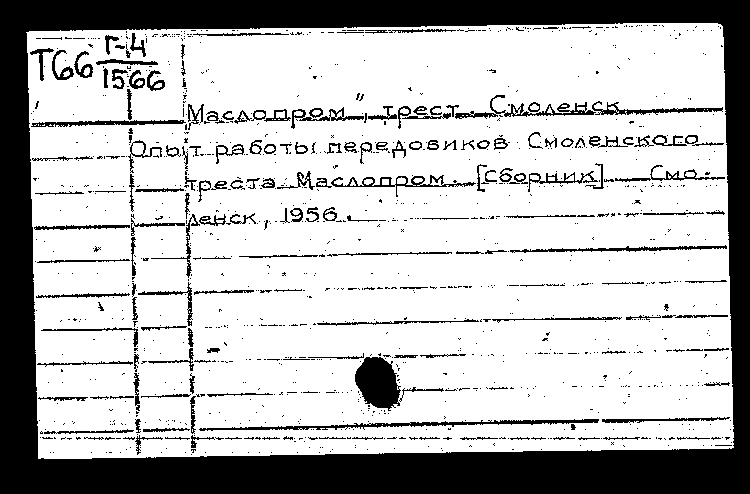 Т66 Г-4
1566
"Маслопром", трест. Смоленск
Опыт работы передовиков Смоленского
треста Маслопром. [Сборник] Смо-
ленск, 1956.